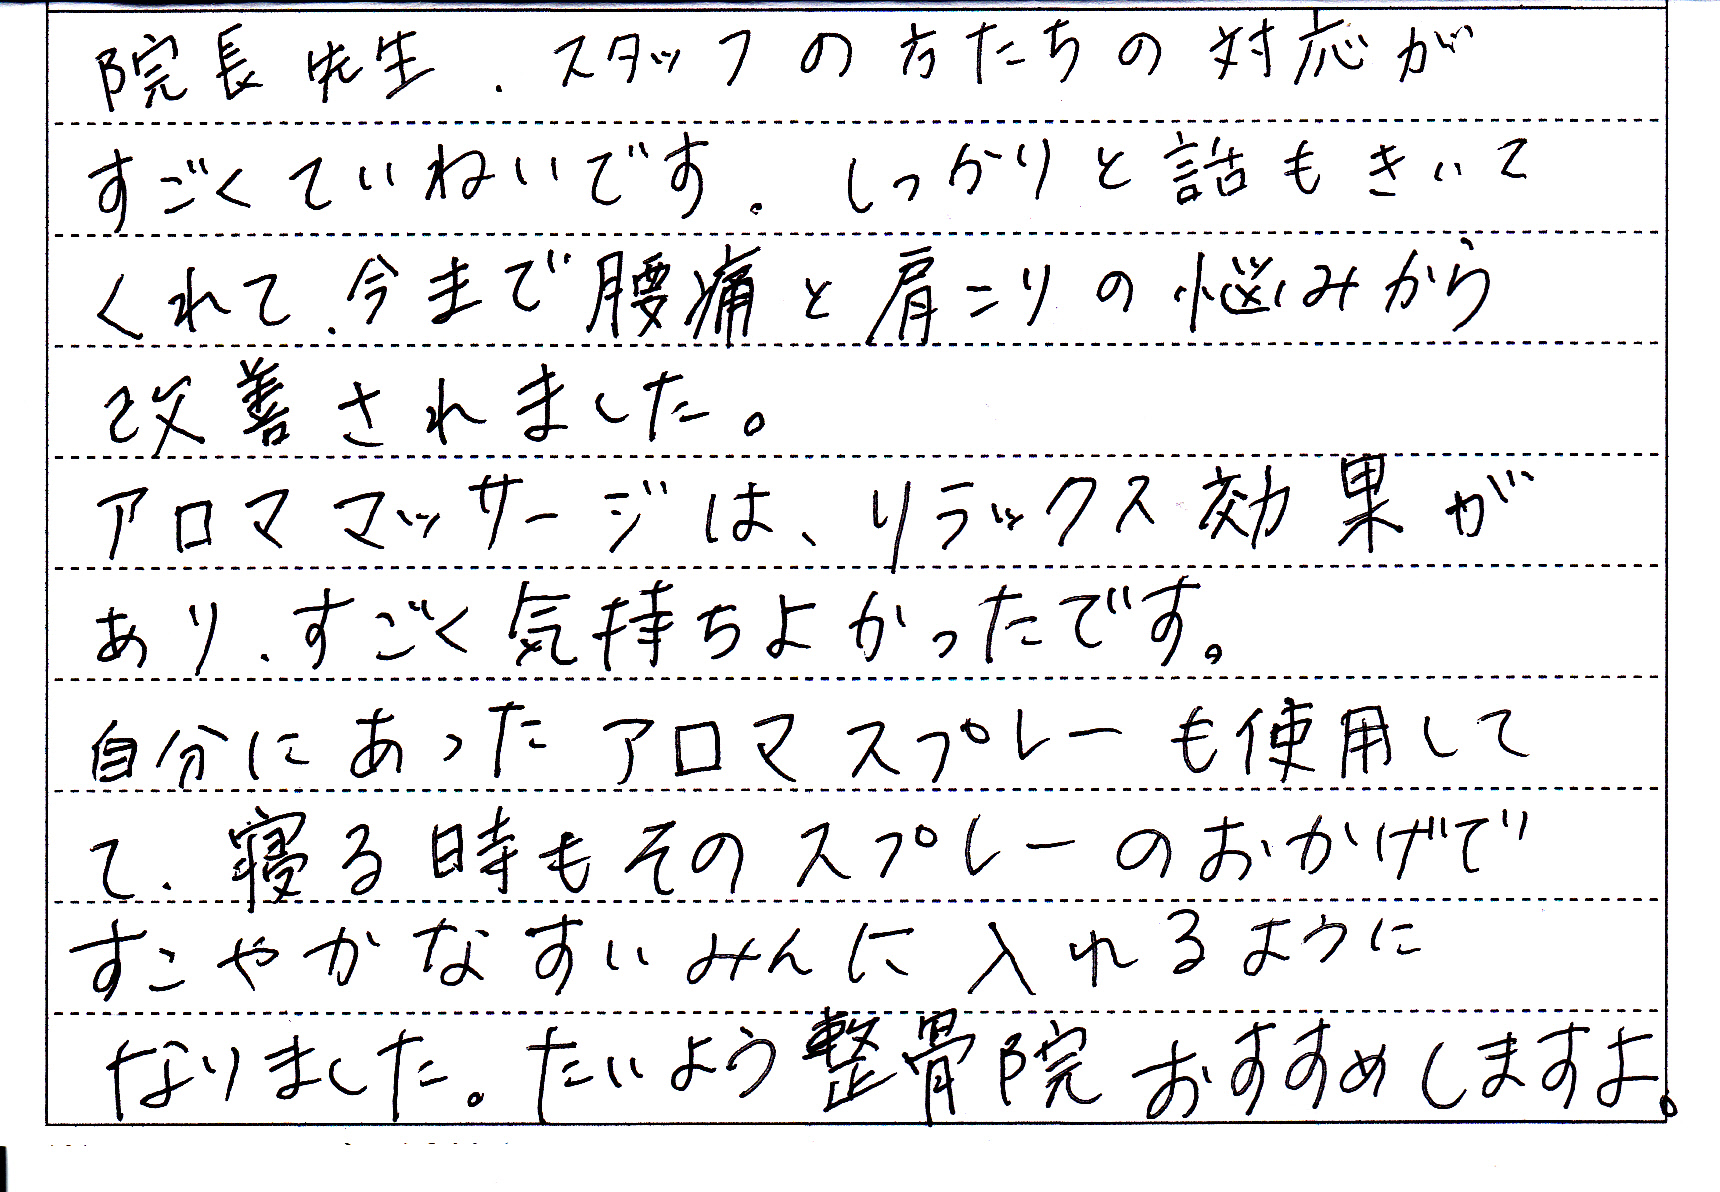 院長先生、スタッフの方たちの対応が
すごくていねいです。しっかりと話もきいて
くれて、今まで腰痛と肩こりの悩みから
改善されました。
アロママッサージは、リラックス効果が
あり、すごく気持ちよかったです。
自分にあったアロマスプレーも使用して
て、寝る時もそのスプレーのおかげで
すこやかなすいみんに入れるように
なりました。たいよう整骨院おすすめしますよ。